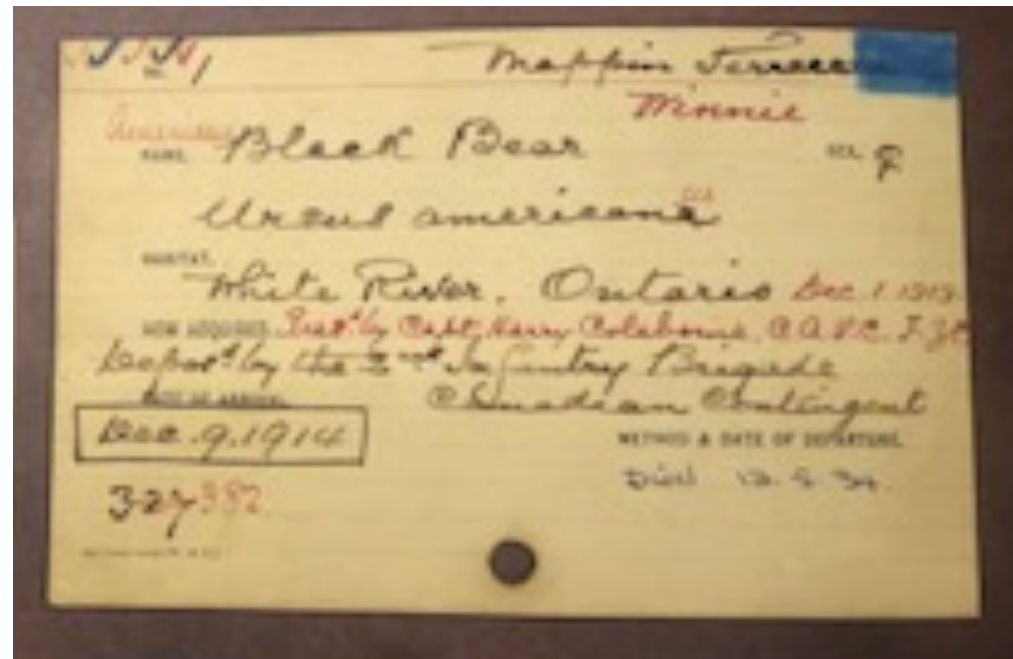 No.
Mappin Terrace
Winnie
American
NAME. Black Bear SEX. ♀
Ursus americana
HABITAT.
White River. Ontario Dec. 1. 1919
HOW ACQUIRED. Pres.d by Capt. Harry Colebourne, C.A.V.C.
Depos.d by the 2nd Infantry Brigade
DATE OF ARRIVAL. Canadian Contingent
Dec. 9. 1914 METHOD & DATE OF DEPARTURE.
327 382 Died 12. 5. 34.